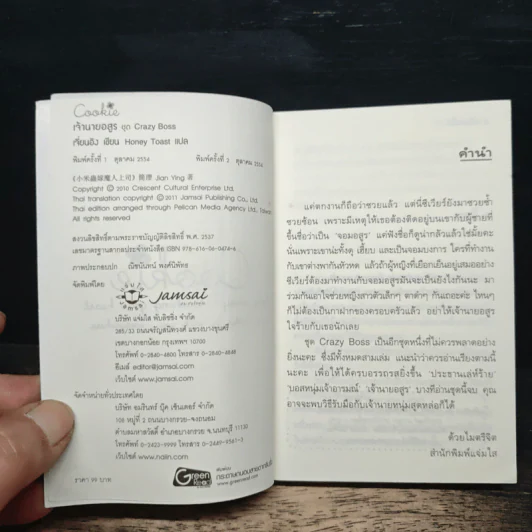 Cookie
เจ้านายอสูร ชุด Crazy Boss
เจี่ยนอิง เขียน Honey Toast แปล
พิมพ์ครั้งที่ 1 ตุลาคม 2554 พิมพ์ครั้งที่ 2 ตุลาคม 2554
《小米蟲嫁魔人上司》簡瓔 Jian Ying 著
Copyright © 2010 Crescent Cultural Enterprise Ltd.
Thai translation copyright © 2011 Jamsai Publishing Co., Ltd.
Thai edition arranged through Pelican Media Agency Ltd., Taiwan
All rights reserved.
สงวนลิขสิทธิ์ตามพระราชบัญญัติลิขสิทธิ์ พ.ศ. 2537
เลขมาตรฐานสากลประจำหนังสือ ISBN 978-616-06-0474-6
ภาพประกอบปก ณิชนันทน์ พงศ์นิพัทธ
จัดพิมพ์โดย
jamsai
บริษัท แจ่มใส พับลิชชิ่ง จำกัด
285/33 ถนนจรัญสนิทวงศ์ แขวงบางขุนศรี
เขตบางกอกน้อย กรุงเทพฯ 10700
โทรศัพท์ 0-2840-4800 โทรสาร 0-2840-4846
อีเมล์ editor@jamsai.com
เว็บไซต์ www.jamsai.com
จัดจำหน่ายทั่วประเทศโดย
บริษัท อมรินทร์ บุ๊ค เซ็นเตอร์ จำกัด
108 หมู่ที่ 2 ถนนบางกรวย-จงถนอม
ตำบลมหาสวัสดิ์ อำเภอบางกรวย จ.นนทบุรี 11130
โทรศัพท์ 0-2423-9999 โทรสาร 0-2449-9561-3
เว็บไซต์ www.naiin.com
ราคา 99 บาท
Green
www.greenread.com
คำนำ
แค่ตกงานก็ถือว่าซวยแล้ว แต่นี่ซีเวียร์ยังมาซวยซ้ำ
ซวยซ้อน เพราะมีเหตุให้เธอต้องติดอยู่บนเขากับผู้ชายที่
ขึ้นชื่อว่าเป็น 'จอมอสูร' แค่ฟังชื่อก็ดูน่ากลัวแล้วใช่มั้ยคะ
นั่นเพราะเขาน่ะทั้งดุ เฮี้ยบ และเป็นจอมบงการ ใครที่ทำงาน
กับเขาต่างพากันหัวหด แล้วถ้าผู้หญิงที่เยือกเย็นอยู่เสมออย่าง
ซีเวียร์ต้องมาทำงานกับจอมอสูรมันจะเป็นยังไงกันนะ มา
ร่วมกันเอาใจช่วยหญิงสาวตัวเล็กๆ ตาดำๆ กันเถอะค่ะ ไหนๆ
ก็ไม่ต้องเป็นกาฝากของครอบครัวแล้ว อย่าให้เจ้านายอสูร
ใจร้ายกับเธอนักเลย
ชุด Crazy Boss เป็นอีกชุดหนึ่งที่ไม่ควรพลาดอย่าง
ยิ่งนะคะ ซึ่งมีทั้งหมดสามเล่ม แนะนำว่าควรอ่านเรียงตามนี้
นะคะ เพื่อให้ได้ครบอรรถรสยิ่งขึ้น 'ประธานเล่ห์ร้าย'
'บอสหนุ่มเจ้าอารมณ์' 'เจ้านายอสูร' บางทีอ่านชุดนี้จบ คุณ
อาจจะพบวิธีรับมือกับเจ้านายหนุ่มสุดหล่อก็ได้
ด้วยไมตรีจิต
สำนักพิมพ์แจ่มใส